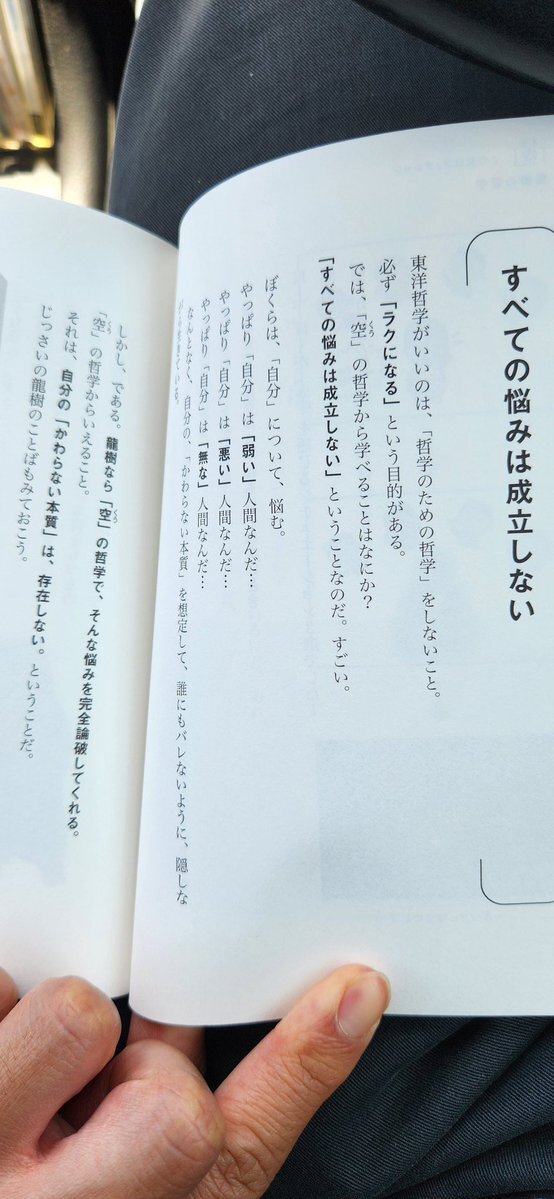 すべての悩みは成立しない
東洋哲学がいいのは、「哲学のための哲学」をしないこと。
必ず「ラクになる」という目的がある。
では、「空」の哲学から学べることはなにか?
「すべての悩みは成立しない」ということなのだ。すごい。
ぼくらは、「自分」について、悩む。
やっぱり「自分」は「弱い」人間なんだ…
やっぱり「自分」は「悪い」人間なんだ…
やっぱり「自分」は「無な」人間なんだ…
なんとなく、自分の、「かわらない本質」を想定して、誰にもバレないように、隠しな
がら生きている。
しかし、である。龍樹なら「空」の哲学で、そんな悩みを完全論破してくれる。
「空」の哲学からいえること。
それは、自分の「かわらない本質」は、存在しない。ということだ。
じっさいの龍樹のことばもみておこう。